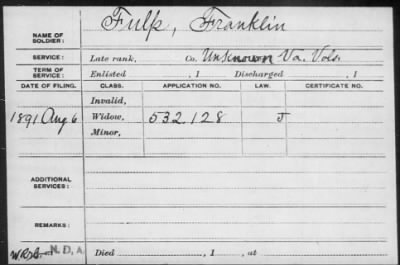 NAME OF SOLDIER: Fulp, Franklin
SERVICE: Late rank, Co. Unknown Va. Vols.
TERM OF SERVICE: Enlisted , 1 Discharged , 1
DATE OF FILING. CLASS. APPLICATION NO. LAW. CERTIFICATE NO.
Invalid,
1891 Aug 6 Widow, 532.128 J
Minor,
ADDITIONAL SERVICES:
REMARKS:
N.D.A.
Died , 1 , at